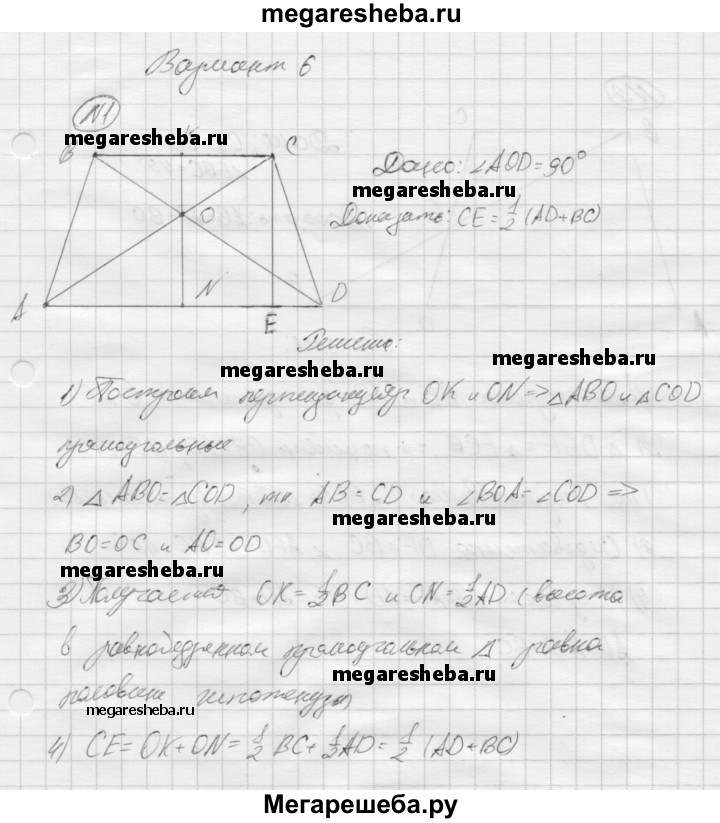 megaresheba.ru
Вариант 6
N1
megaresheba.ru
K
B
C
Дано: ∠AOD=90°
megaresheba.ru
O
Доказать: CE=½(AD+BC)
A
N
D
E
Решение:
megaresheba.ru
megaresheba.ru
1) Построим перпендикуляр OK и ON => △ABO и △COD
прямоугольные
2) △ABO=△COD, т.к. AB=CD и ∠BOA=∠COD =>
megaresheba.ru
BO=OC и AO=OD
megaresheba.ru
3) Получается OK=½BC и ON=½AD (высота
в равнобедренном прямоугольном △ равна
megaresheba.ru
половине гипотенузы)
megaresheba.ru
4) CE=OK+ON=½BC+½AD=½(AD+BC)
Мегарешеба.ру